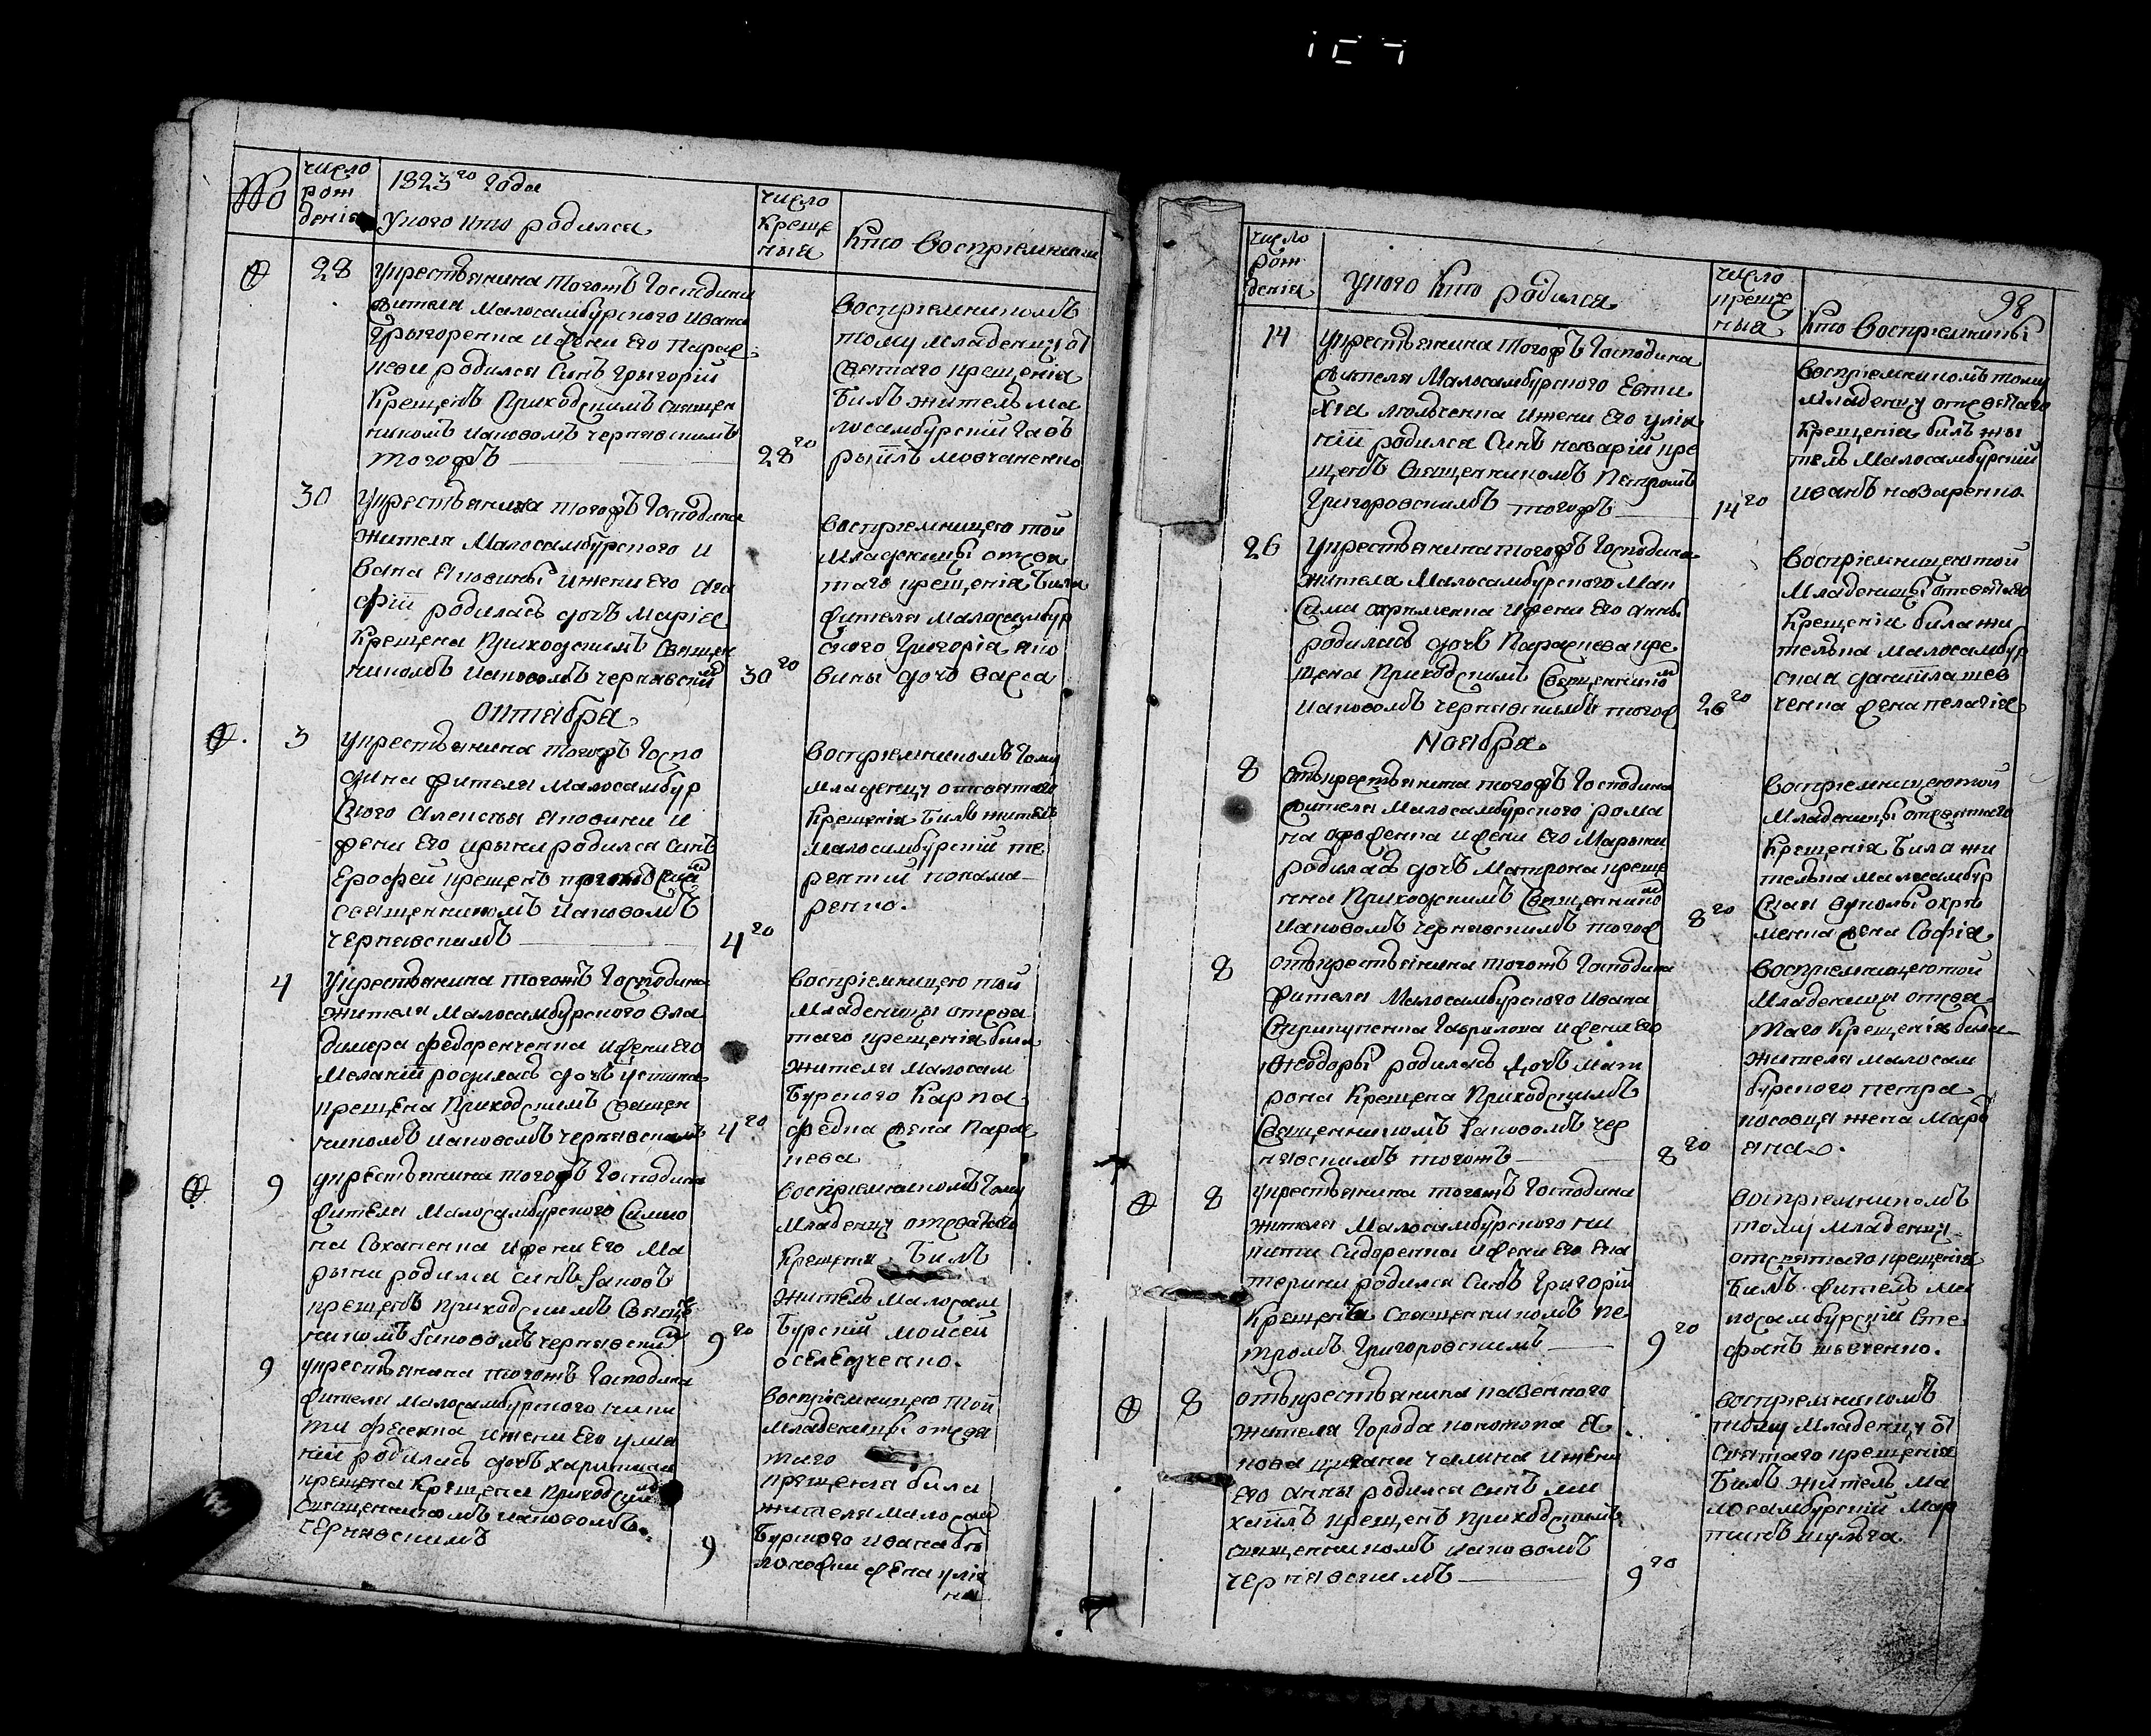 число
рож
денія
1823го года
Укого кто родился
число
креще
ныя
Кто Воспріемники
28
Укрестьянина тогожъ Господина
жителя Малосамбурского Ивана
Грыгоренка ижени Его Парас
кеви родился Синъ Грыгорій
Крещенъ Приходскимъ священ
никомъ Иаковомъ Чернявскимъ
тогожъ
28го
Воспріемникомъ
тому младенцу от
Святаго крещенія
Билъ житель ма
лосамбурскій Гав
рыилъ Мовчаненко
30
Укрестьянина тогожъ Господина
жителя Малосамбурского И
вана Яковины ижени Его Ага
фіи родилась дочь Марія
Крещена Приходскимъ Священ
никомъ Иаковомъ Чернявским
30го
Воспріемницею той
Младеницы отсвя
таго крещенія Била
жителя Малосамбур
ского Григорія Яко
вины дочь Васса
Октября
3
Укрестьянина тогожъ Госпо
дина жителя Малосамбур
Ского Алексея Яковини и
жени Его Ирыни родился Синъ
Ерофей крещенъ
священникомъ Иаковомъ
Чернявскимъ
4го
Воспріемникомъ тому
младенцу отсвятаго
Крещенія Билъ житель
Малосамбурскій Те
рентій Понама
ренко.
4
Укрестьянина тогожъ Господина
жителя Малосамбурского Вла
димера Федоренченка ижени Его
Меланіи родилась дочь Устина
крещена Приходскимъ Священ
никомъ Иаковомъ Чернявскимъ
4го
Воспріемницею той
Младеницы отсвя
таго крещенія била
жителя Малосам
Бурского Карпа
Федка жена Парас
кева
9
Укрестьянина тогожъ Господина
жителя Малосамбурского Симио
на Соханенка ижени Его Ма
рыни родился синъ Іаковъ
крещенъ Приходскимъ Священ
никомъ Іаковомъ Чернявским
9го
Воспріемникомъ тому
Младенцу отсвятаго
Крещенія Билъ
житель Малосам
Бурскій Моисей
Оселедченко.
9
Укрестьянина тогожъ Господина
жителя Малосамбурского Ники
ти Фесенка ижени Его Улия
ніи родилась дочь Харытина
крещена Крещена Приходским
Священникомъ Иаковомъ
Чернявскимъ
9
Воспріемницею той
Младеницы отсвя
таго
крещенія била
жителя Малосам
Бурского Ивана Бѣ
локони жена Улія
на
число
рож
денія
Укого Кто родился
число
креще
ныя
98
Кто Воспріемники
14
Укрестьянина тогожъ Господина
жителя Малосамбурского Евти
хія Люльченка ижени Его Улія
ніи родился Синъ Назарій кре
щенъ Священникомъ Петромъ
Григоровскимъ тогожъ
14го
Воспріемникомъ тому
Младенцу отсвятаго
Крещенія билъ жи
тель Малосамбурскій
Иванъ Назаренко
26
Укрестьянина тогожъ Господина
жителя Малосамбурского Мак
Сима Охрименка ижени Его Анны
родилась дочь Параскева кре
щена Приходскимъ Священником
Иаковомъ Чернявскимъ тогож
26го
Воспріемницею той
Младеницы отсвятаго
Крещенія била жи
телька Малосамбур
ская Даніила Шев
ченка жена Пелагія
Ноября
8
Отъкрестьянина тогожъ Господина
жителя Малосамбурского Рома
на ижени Его Марыни
родилась дочь Матрона креще
нна Приходскимъ Священнико
Иаковомъ Чернявскимъ тогож
8го
Воспріемницею той
Младеницы отсвятаго
Крещенія Била жи
телька Малосамбур
Ская Вуколы Охрѣ
менка жена Софія
8
Отькрестьянина тогожъ Господина
жителя Малосамбурского Ивана
Скрипченка Гаврилова ижени Его
Феодоры родилась Дочь Мат
рона Крещена Приходскимъ
Священникомъ Іаковомъ Чер
нявскимъ тогожъ
8го
Воспріемницею той
Младеницы отсвя
таго Крещенія била
жителя Малосам
бурского Петра
Косовця жена Марѳ
яна.
8
Укрестьянина тогожъ Господина
жителя Малосамбурского Ни
кити Сидоренка ижени Его Ека
терини родился Синъ Григорій
Крещенъ Священникомъ Пе
тромъ Григоровскимъ
9го
Воспріемникомъ
тому младенцу
отсвятаго крещенія
Билъ житель Ма
лосамбурскій Сте
фанъ Шевченко.
8
отъкрестьянина казенного
жителя Города Конотопа Я
кова ижени
Его Анны родился синъ Ми
хаилъ крещенъ Приходскимъ
священникомъ Иаковомъ
Чернявскимъ
9го
Воспріемникомъ
тому Младенцу от
Святаго крещенія
Билъ житель Ма
лосамбурскій Мар
тинъ Шульга